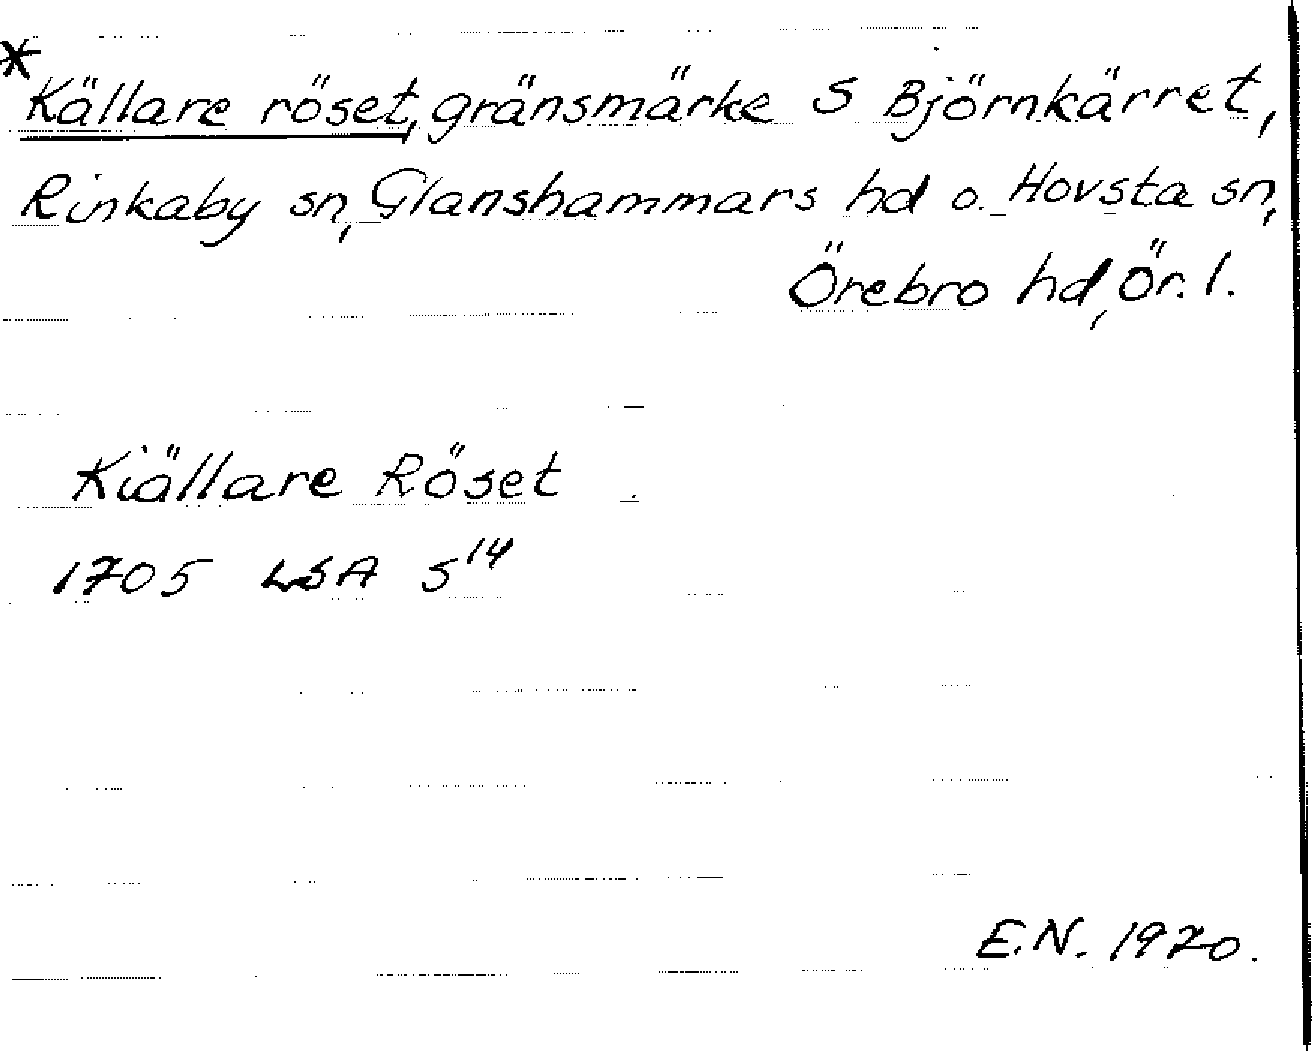 *Källare röset, gränsmärke S Björnkärret,
Rinkaby sn, Glanshammars hd o. Hovsta sn,
Örebro hd, Ör. l.
Kiällare Röset
1705 LSA S¹⁴
E.N. 1970.